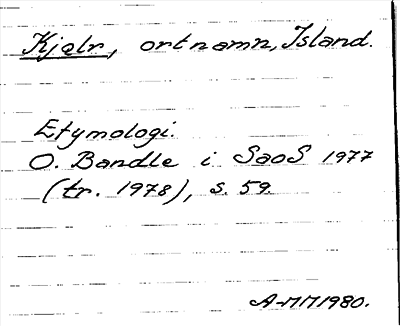 Kjǫlr, ortnamn, Island.
Etymologi.
O. Bandle i SaoS 1977
(tr. 1978), s. 59.
A-MM1980.